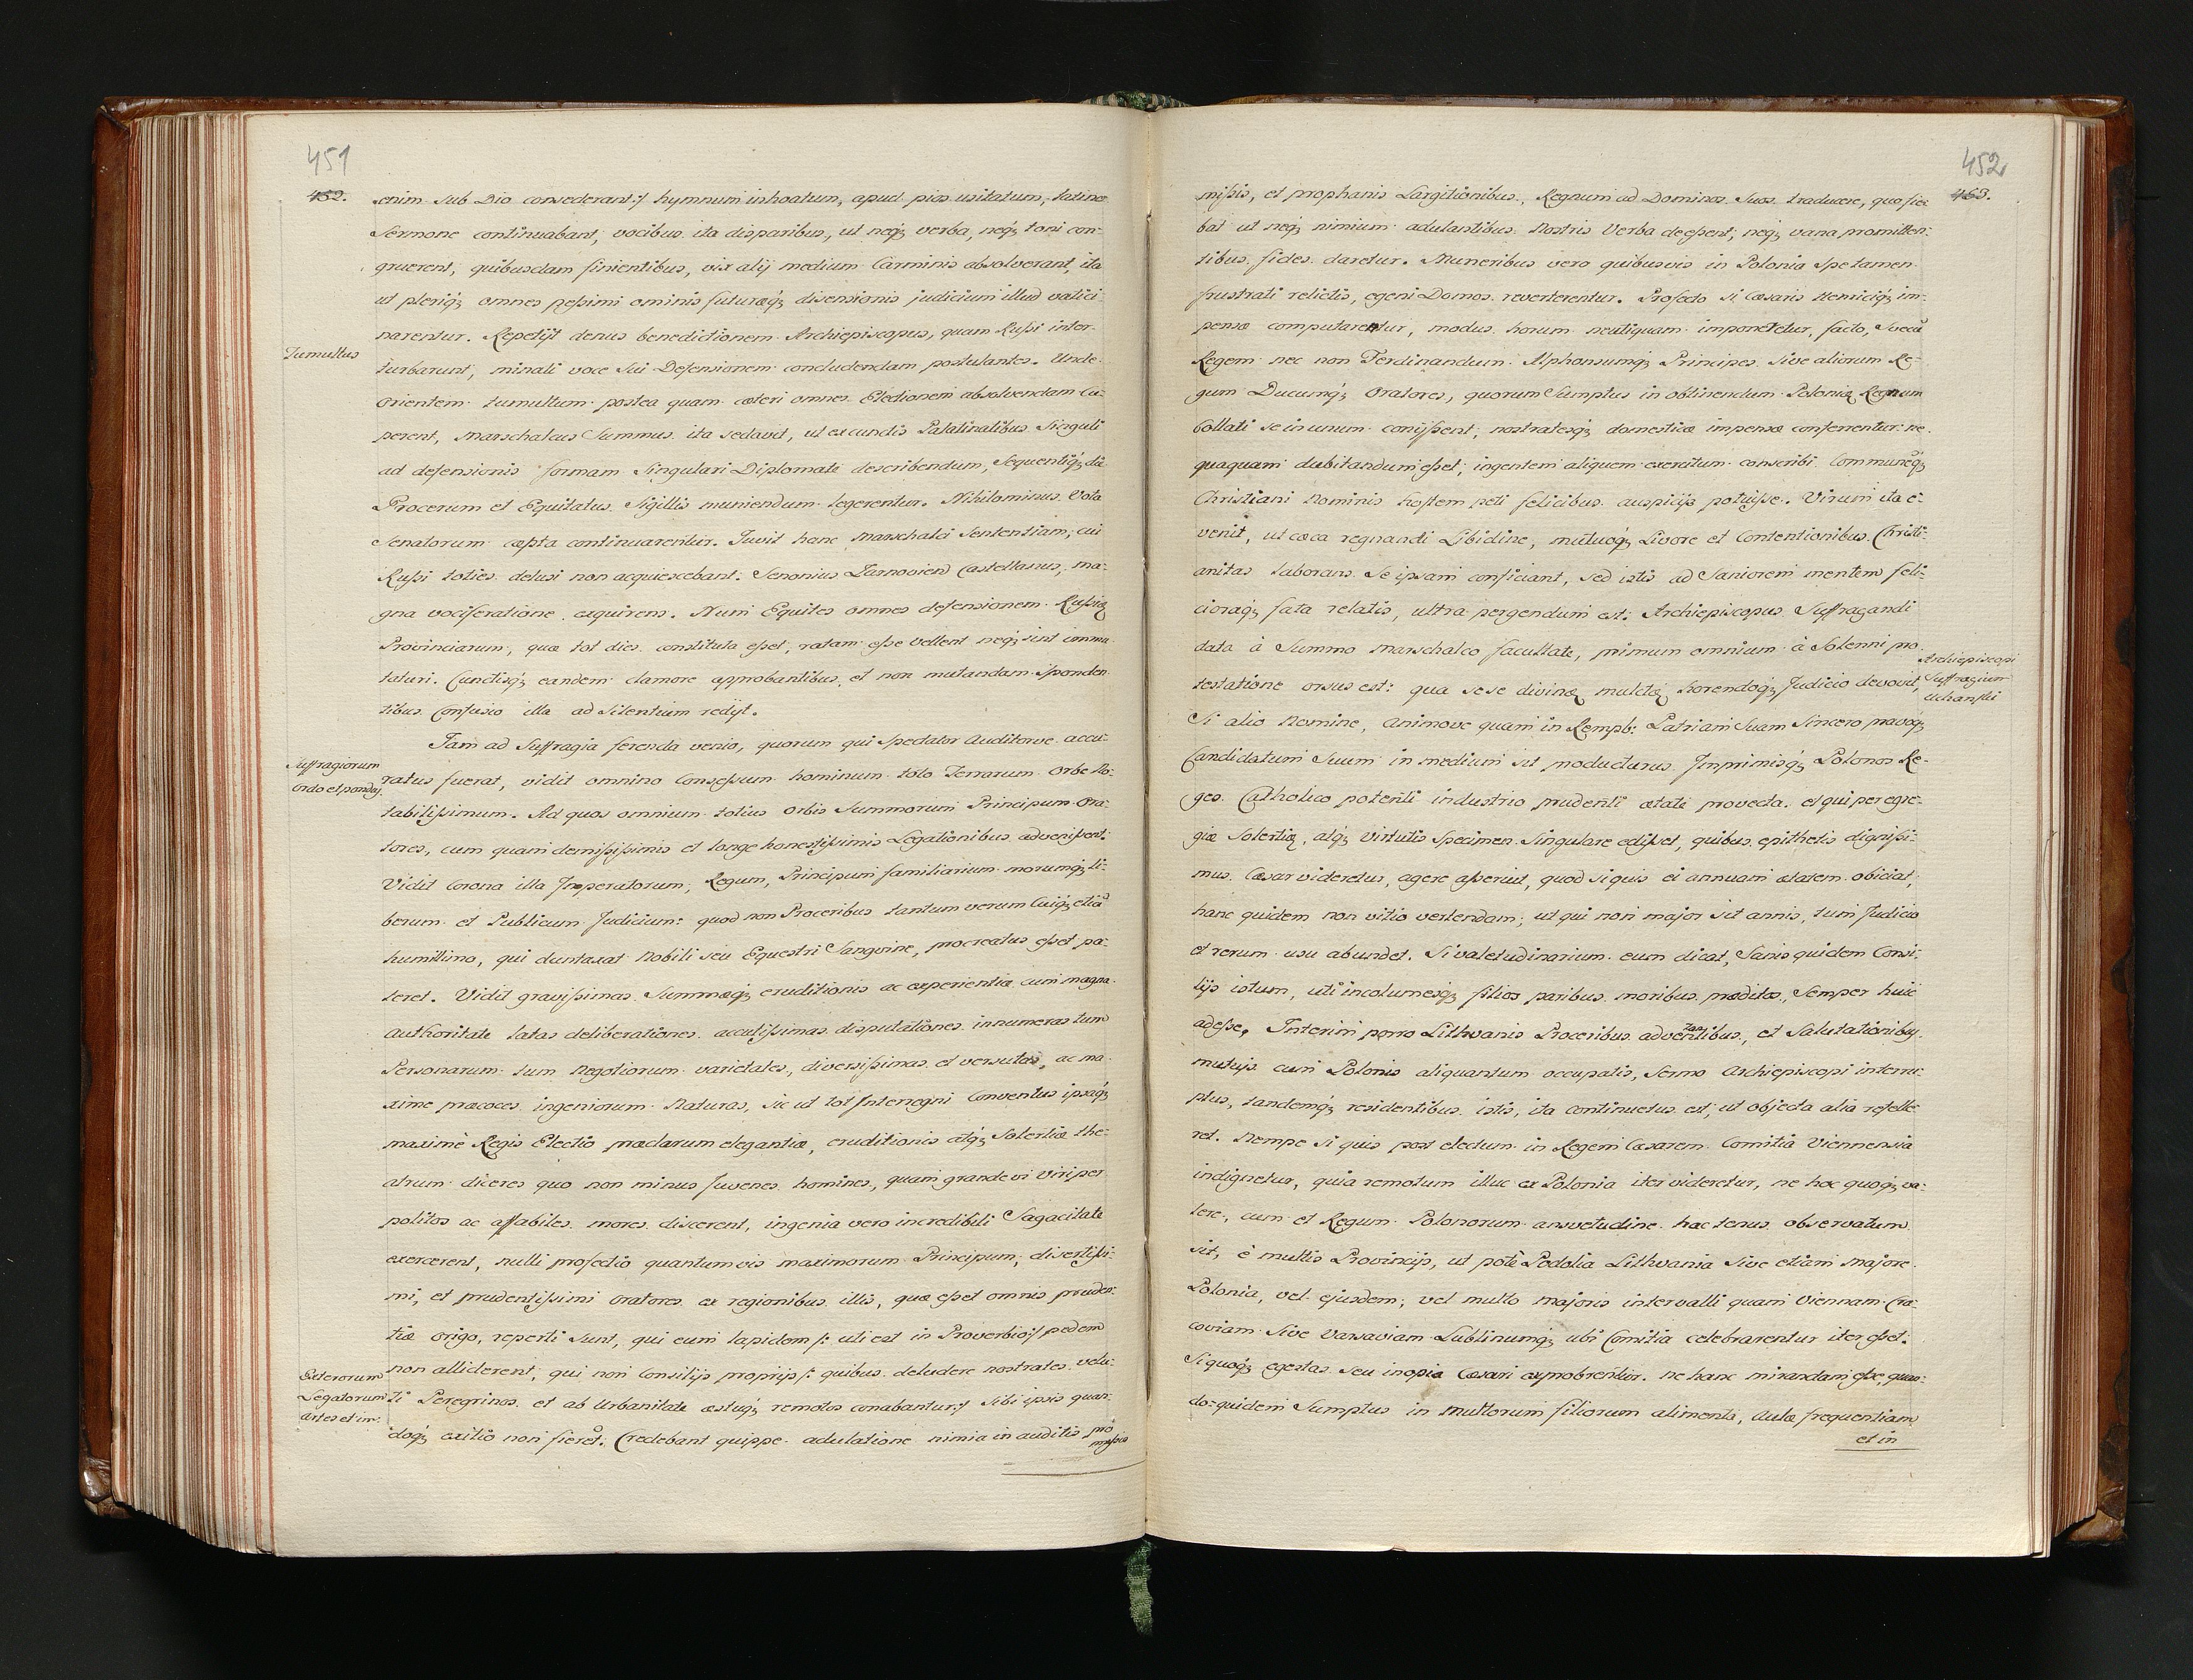 451
452.
enim Sub Dio consederant :/ hymnum inhoatum, apud pios usitatum, latino
Sermone continuabant, vocibus ita disparibus, ut neq3 verba, neq3 toni con-
gruerent, quibusdam finientibus, vix alij medium Carminis absolverant, ita
ut pleriq3 omnes peßimi ominis futuræq3 disensionis judicium illud vatici-
narentur. Repetijt denus benedictionem Archiepiscopus, quam Rußi inter-
Tumultus
turbarunt, minati voce Sui Defensionem concludendam postulantes. Unde
Orientem tumultum postea quam cæteri omnes Electionem absolvendam Cu-
perent, Marschalcus Summus ita sedavit, ut ex cunctis Palatinatibus Singuli
ad defensionis formam Singulari Diplomate describendum, Sequentiq3 die
Procerum et Equitatus Sigillis muniendum legerentur. Nihilominus Vota
Senatorum cæpta continuarentur. Juvit hanc Marschalci Sententiam, cui
Rußi toties delusi non acquiescebant. Senonius Zarnovien Castellanus, ma-
gna vociferatione exquirens. Num Equites omnes defensionem Rußiæ
Provinciarum, quæ tot dies constituta eßet, ratam eße Vellent neq3 sint immu-
taturi. Cunctisq3 eandem clamore approbantibus, et non mutandam Sponden-
tibus Confusio illa ad Silentium redijt.
Jam ad Suffragia ferenda venio, quorum qui Spectator Auditorve accu-
Suffragiorum
ordo et pondus
ratus fuerat, vidit omnino Conseßum hominum toto Terrarum Orbe No-
tabilißimum. Ad quos omnium totius Orbis Summorum Principum Ora-
tores, cum quam demißißimis et longe honestißimis Legationibus advenißent.
Vidit Corona illa Imperatorum, Regum, Principum familiarium morumq3 li-
berum et Publicum Judicium: quod non Proceribus tantum verum Cuiq3 etiā
humillimo, qui duntaxat Nobili seu Equestri Sangvine, procreatus eßet pa-
teret. Vidit gravißimas Summæq3 eruditionis ac experientia cum magna
Authoritate latas deliberationes accutißimas disputationes innumeras tum
Personarum tum Negotiorum varietates, diversißimas et versutas, ac ma-
xime præcoces ingeniorum Naturas, sic ut tot Interregni Conventus ipsaq3
maximè Regis Electio præclarum elegantiæ, eruditionis atq3 Solertiæ the-
atrum diceres quo non minus Juvenes homines, quam grandevi Viri per
politos ac affabiles mores discerent, ingenia vero incredibili Sagacitate
exercerent, nulli profectio quantumvis maximorum Principum, disertißi-
mi, et prudentißimi Oratores ex regionibus illis, quæ eßet omnis pruden-
tiæ origo, reperti Sunt, qui eum lapidem /: uti est in Proverbio :/ pedem
Exterorum
Legatorum
Artes et im:
non alliderent, qui non Consilijs proprijs /: quibus deludere nostrates velu-
ti Peregrinos et ab Urbanitate æstuq3 remotos conabantur :/ Sibi ipsis quan-
doq3 exitio non fieret. Credebant quippe adulatione nimia inauditis pro
mißis
452
453.
mißis, et prophanis Largitionibus, Regnum ad Dominos Suos traducere, quo fie-
bat ut neq3 nimium adulantibus Nostris Verba deeßent, neq3 vana promitten-
tibus fides daretur. Muneribus vero quibusvis in Polonia Spe tamen
frustrati relictis, egeni Domos reverterentur. Profecto Si Cæsaris Hemiciq3 im-
pensæ computarentur, modus horum neutiquam imponeretur, facto, Svecū
Regem nec non Ferdinandum Alphonsumq3 Principes Sive aliorum Re-
gum Ducumq3 Oratores, quorum Sumptus in obtinendum Poloniæ Regnum
Collati se in unum conijßent, nostratesq3 domesticæ impensæ conferrentur: ne-
quaquam dubitandum eßet, ingentem aliquem exercitum conscribi Communeq3
Christiani Nominis hostem peti felicibus auspicijs potuiße. Virum ita e-
venit, ut cæca regnandi Libidine, mutuoq3 Livore et Contentionibus Christi-
anitas laborans Se ipsam conficiant, sed istis ad Saniorem mentem feli-
cioraq3 fata relatis, ultra pergendum est: Archiepiscopus Suffragandi
data à Summo Marschalco facultate, primum omnium à Solenni pro-
Archiepiscopi
Suffragium
Uchanski
testatione orsus est: qua sese divinæ mulctæ horendoq3 Judicio devovit,
Si alio Nomine, Animove quam in Rempb: Patriam Suam Sincero pravoq3
Candidatum Suum in medium sit producturus. Inprimisq3 Polonos Re-
ges Catholico potenti industrio prudenti ætate provecta, et qui per egre-
giæ Solertiæ, atq3 Virtutis Specimen Singulare edißet, quibus epithetis dignißi-
mus Cæsar videretus, agere aßeruit, quod si quis ei annuam ætatem obiciat,
hanc quidem non vitio vertendam, ut qui non major sit annis, tum Judicio
et rerum usu abundet. Si valetudinarium eum dicat, Sanis quidem Consi-
lijs istum, uti incolumesq3 filios paribus moribus præditos, Semper huic
adeße, Interim porro Lithvanis Proceribus adventantibus, et Salutationibus
mutuijs cum Polonis aliquantum occupatis, Sermo Archiepiscopi interru-
ptus, tandemq3 residentibus istis, ita continuetus est, ut objecta alia refelle-
ret. Nempe Si quis post electum in Regem Cæsarem Comitia Viennensia
indignetur, quia remotum illuc ex Polonia iter videretur, ne hoc quoq3 va-
lere, cum et Regum Polonorum ansvetudine hac tenus observatum
sit, è multis Provincijs, ut potè Podolia Lithvania Sive etiam Majore
Polonia, vel ejusdem, vel multo majoris intervalli quam Viennam Cra-
coviam Sive Varsaviam Lublinumq3 ubi Comitia celebrarentur iter eßet.
Si quoq3 egestas seu inopia Cæsari exprobrentur. ne hanc mirandam eße, quan-
do-quidem Sumptus in multorum filiorum alimenta, Aulæ frequentiam
et in